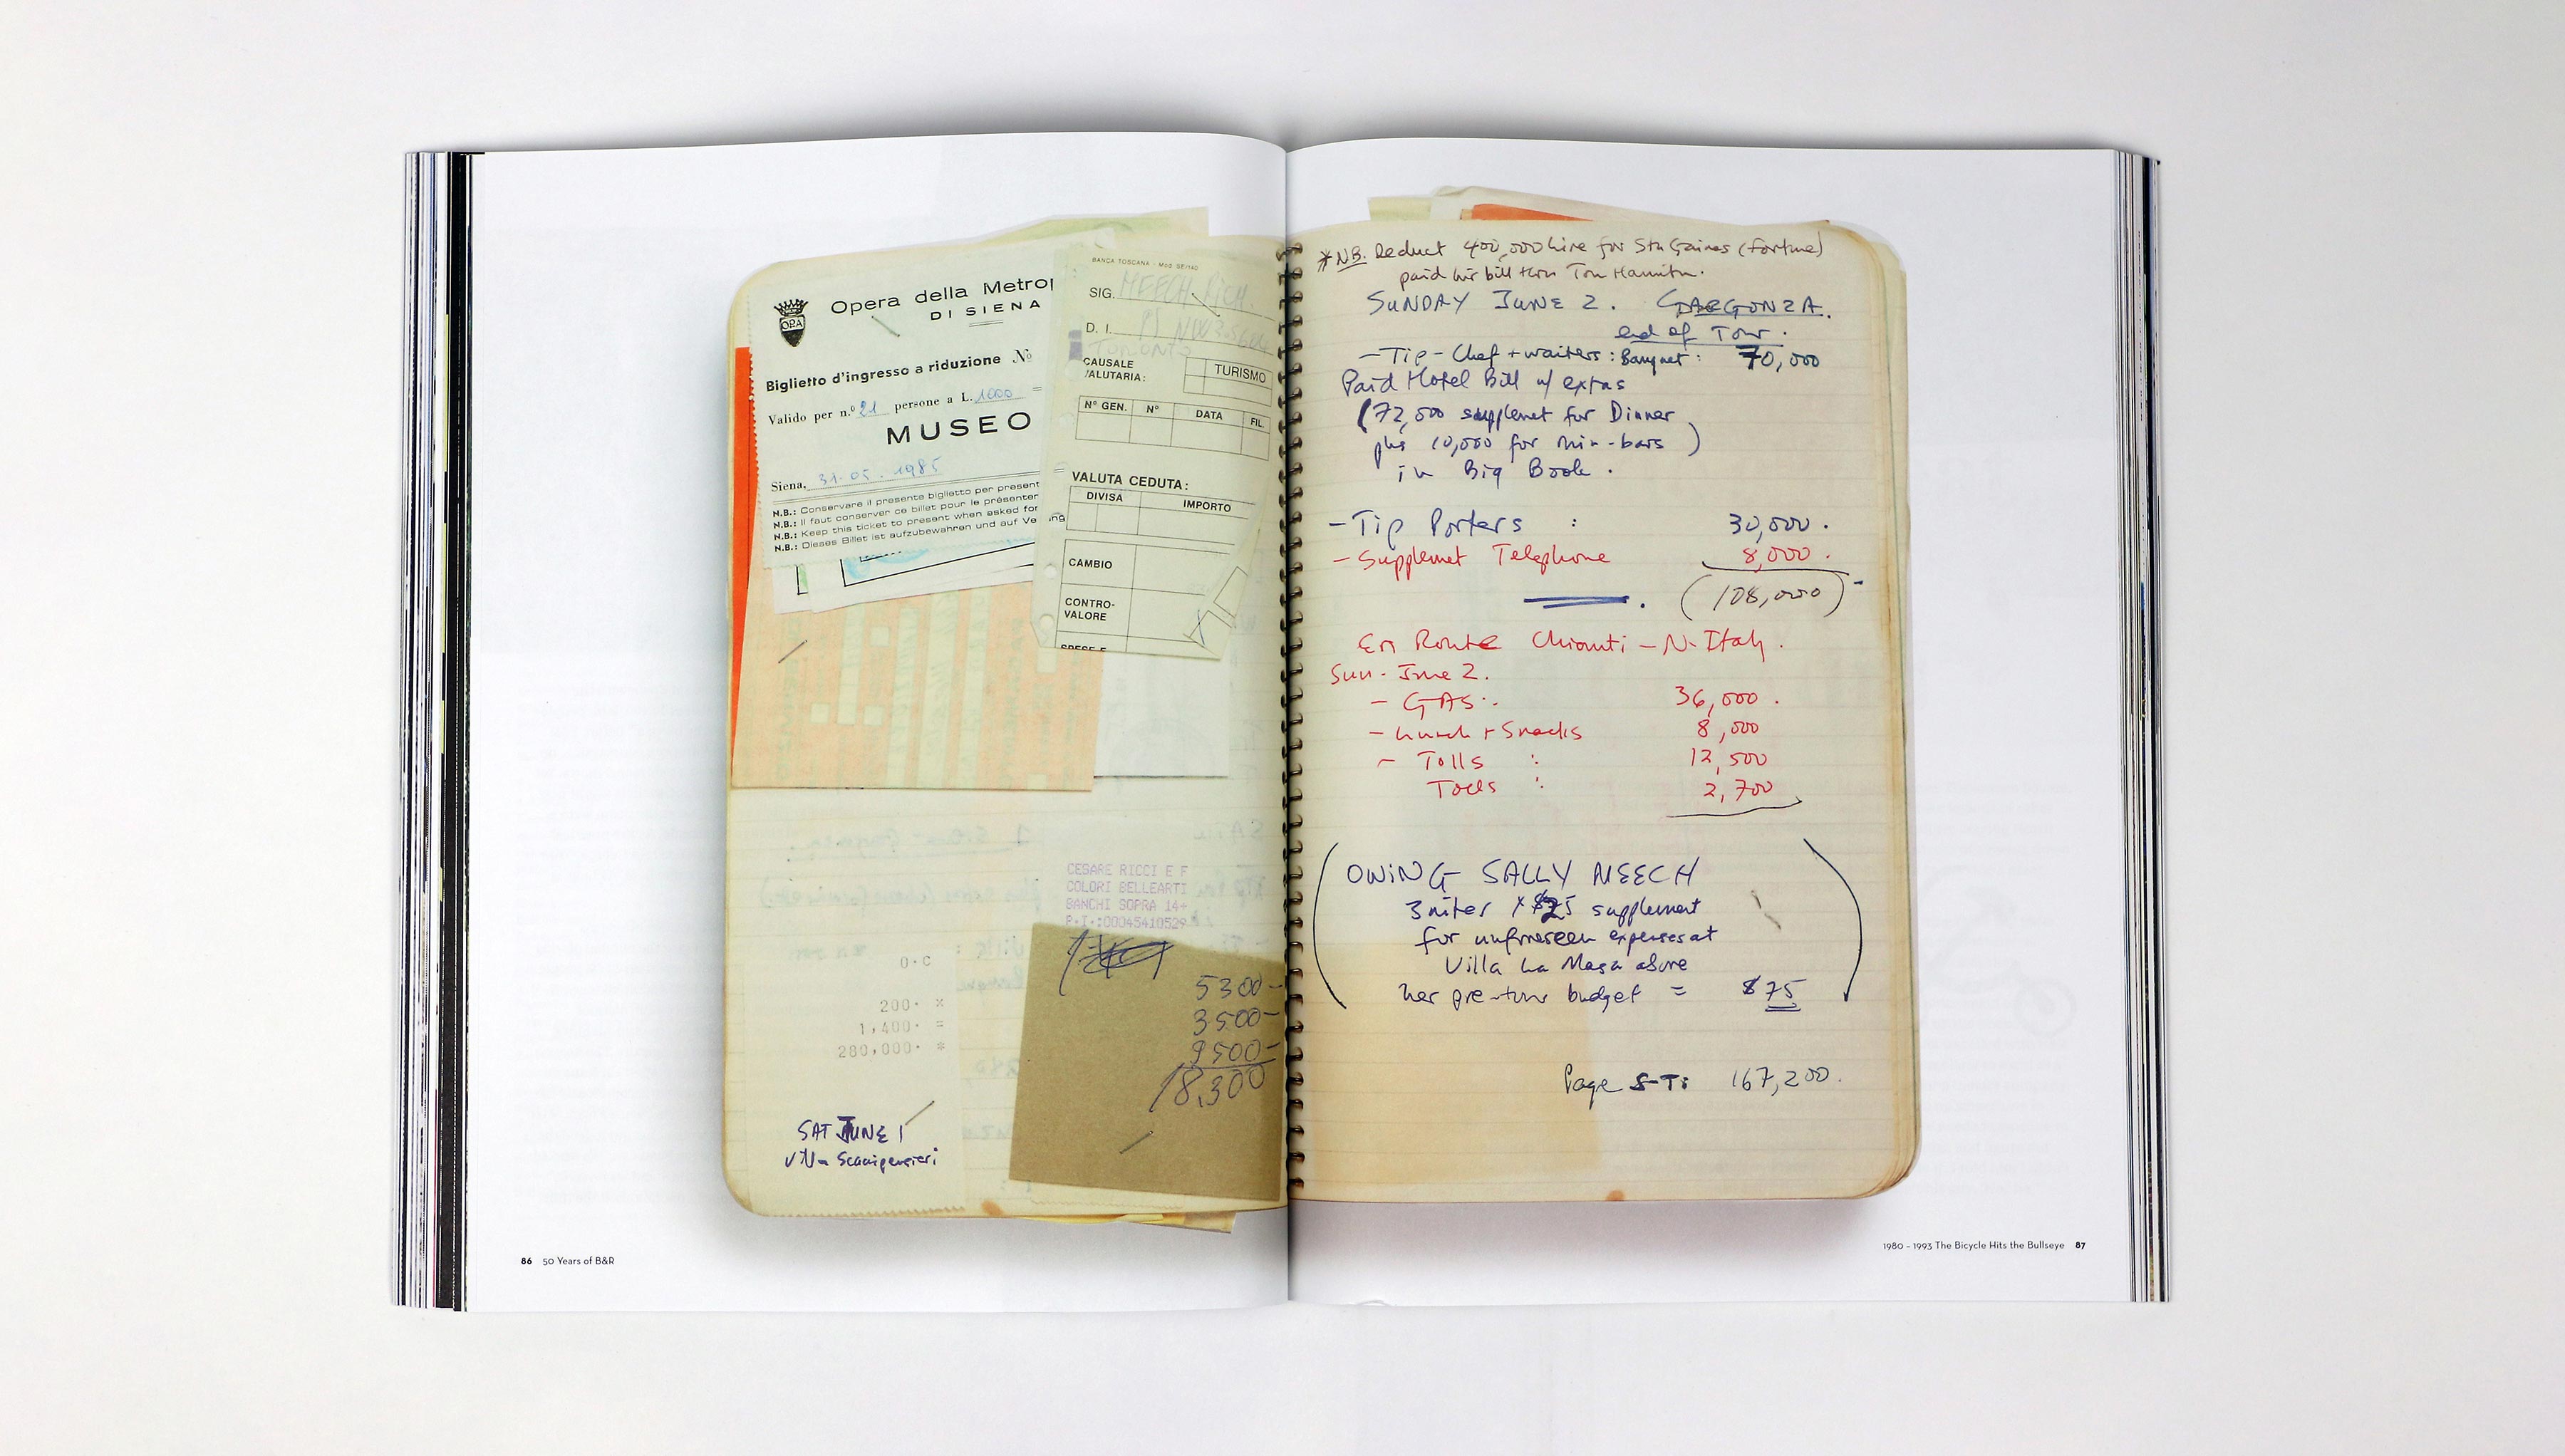 Opera della Metrop
DI SIENA
OPA
Biglietto d'ingresso a riduzione No
Valido per n.o 21 persone a L. 1000 =
MUSEO
Siena, 31.05.1985
N.B.: Conservare il presente biglietto per present
N.B.: Il faut conserver ce billet pour le présenter
N.B.: Keep this ticket to present when asked for
N.B.: Dieses Billet ist aufzubewahren und auf Ve
BANCA TOSCANA - Mod. SE/140
SIG. MEECH RICH.
D. I.
TORONTO
CAUSALE
VALUTARIA:
TURISMO
N° GEN. N° DATA FIL.
VALUTA CEDUTA:
DIVISA IMPORTO
CAMBIO
CONTRO-
VALORE
SPESE E
CESARE RICCI E F
COLORI BELLEARTI
BANCHI SOPRA 14
P.I.:00045410529
0.C
200. x
1,400. =
280,000. *
SAT JUNE 1
Villa Scacciapensieri
5300-
3500-
9500-
18,300
86 50 Years of B&R
*NB. Deduct 400,000 lire for Stu Gaines (Fortune)
paid his bill thru Tom Hamilton.
SUNDAY JUNE 2. GARGONZA.
end of Tour.
- Tip - Chef + waiters: Banquet: 70,000
Paid Hotel Bill w/ extras
(72,000 supplemet for Dinner
plus 10,000 for min-bars)
in Big Book.
- Tip Porters : 30,000.
- Supplemet Telephone 8,000.
(108,000)
En Route Chianti - N. Italy.
Sun. June 2.
- GAS: 36,000.
- Lunch + Snacks 8,000
- Tolls : 12,500
Tolls : 2,700
(OWING SALLY MEECH
3 nites x $25 supplement
for unforeseen expenses at
Villa La Masa above
her pre-tour budget = $75)
Page S-T: 167,200.
1980 - 1993 The Bicycle Hits the Bullseye 87